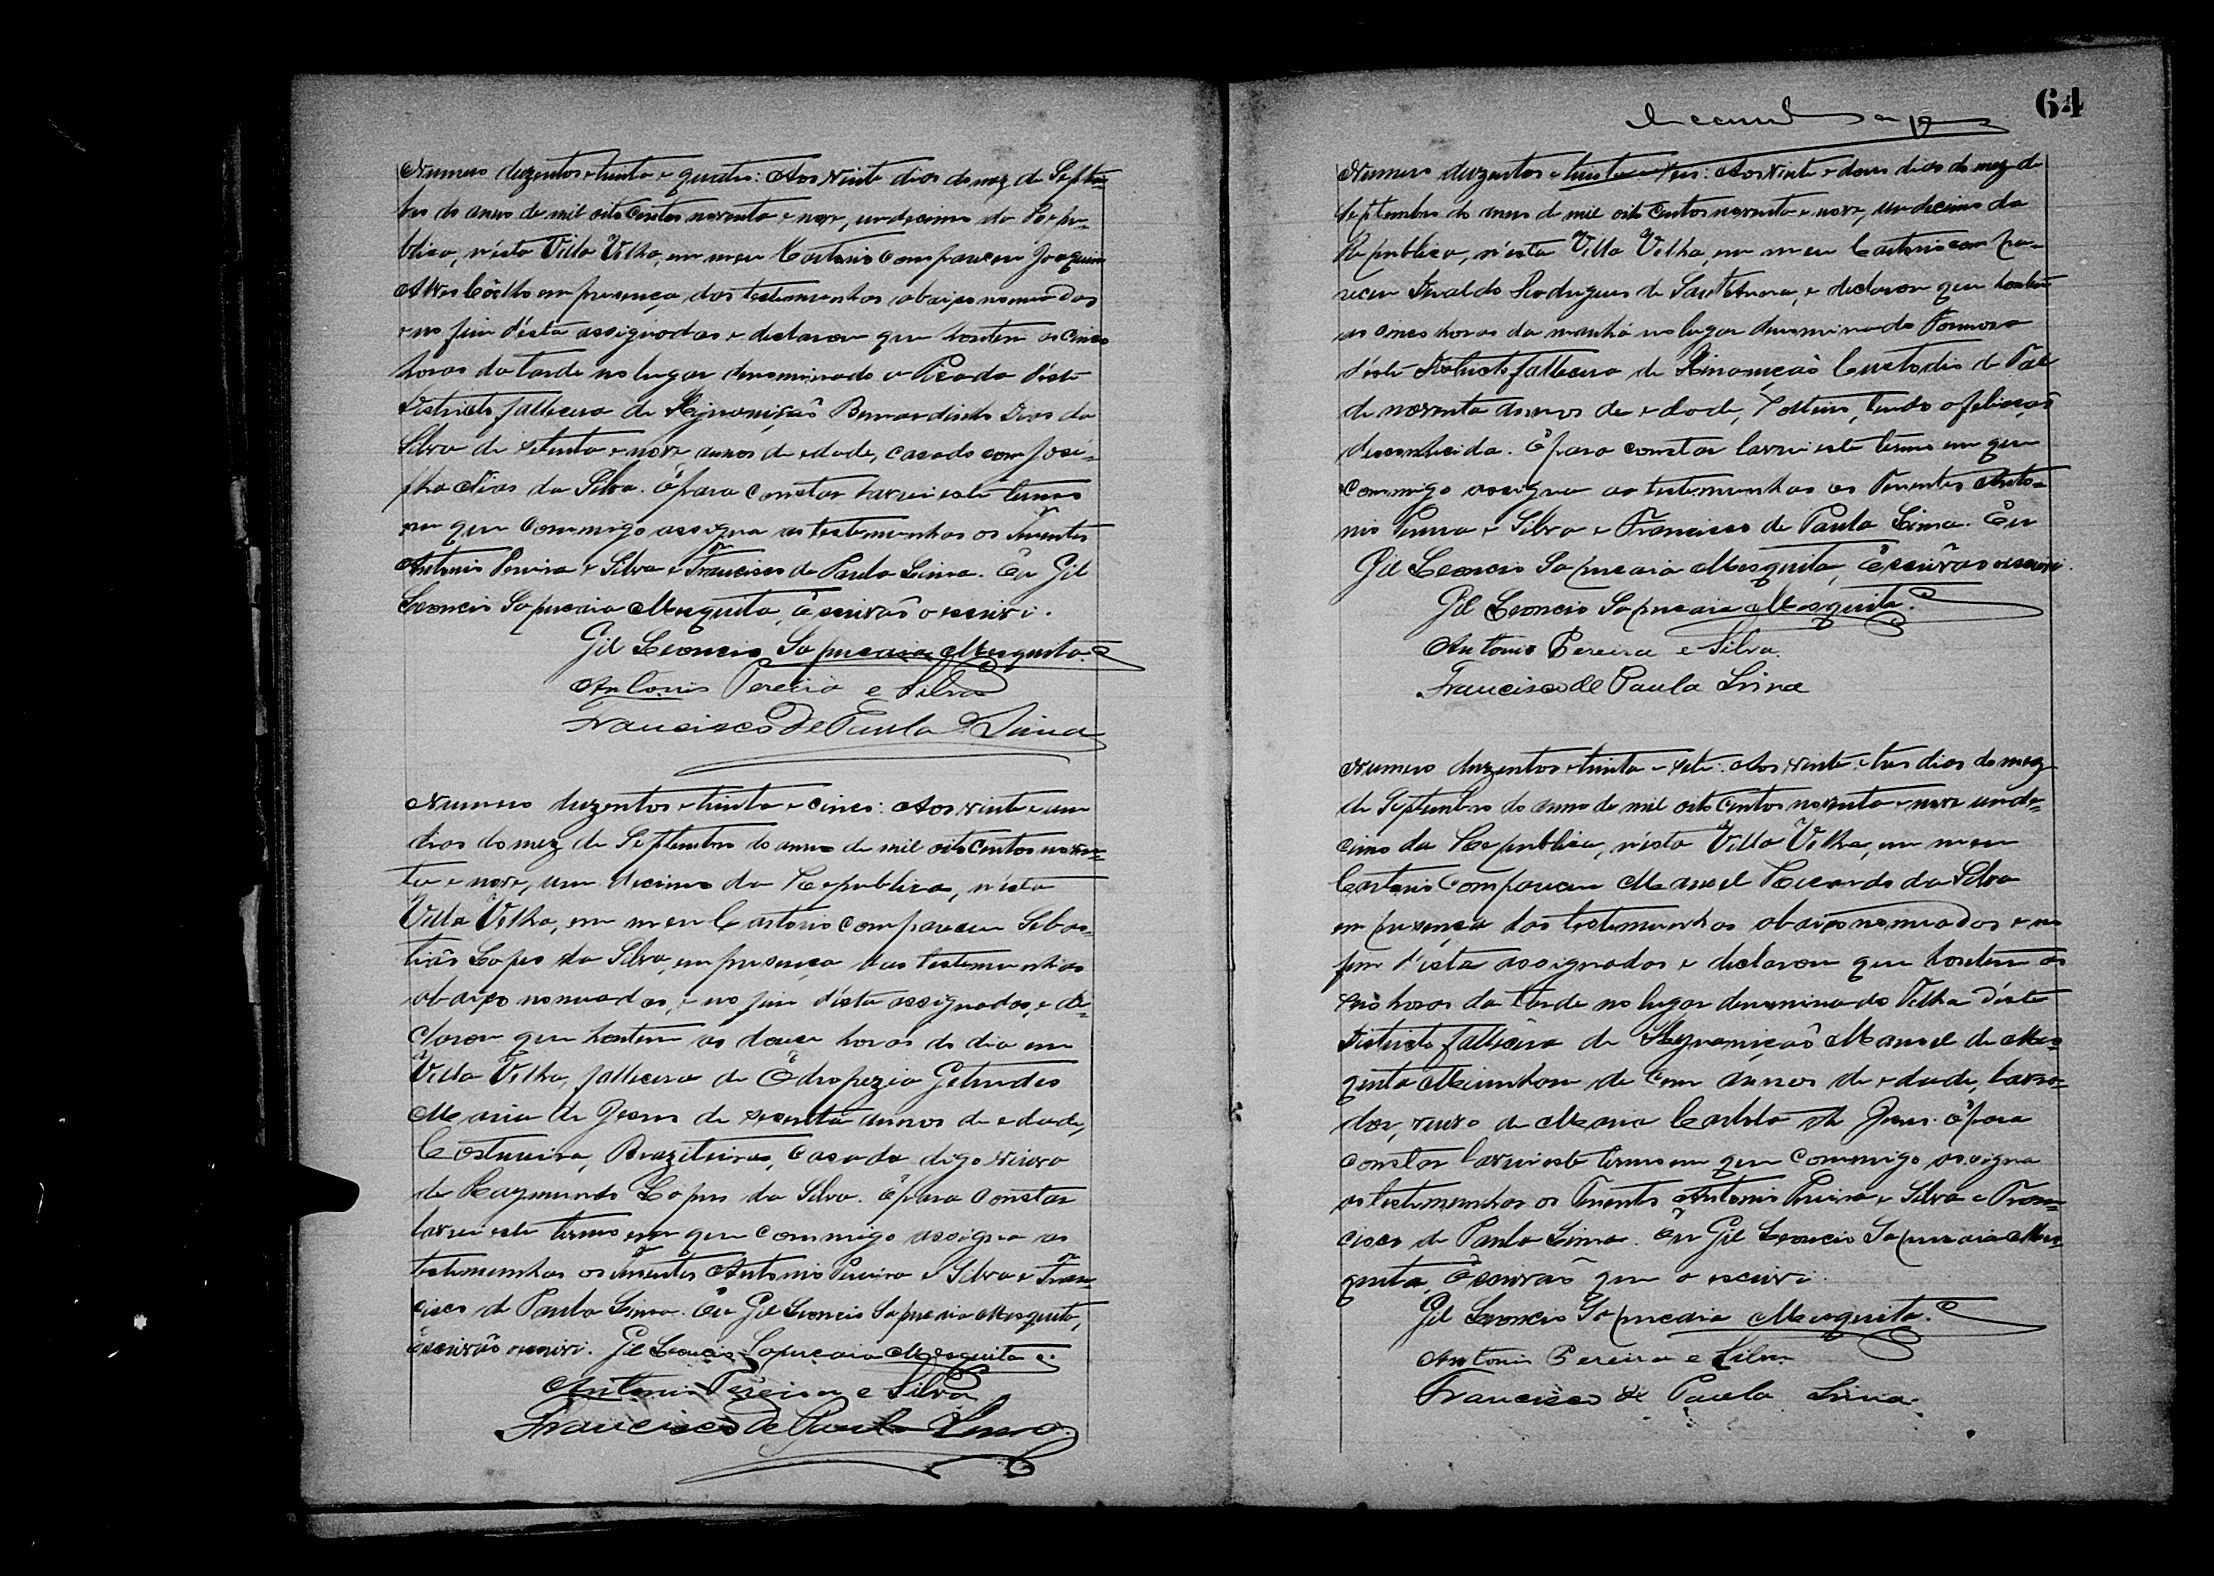 Numero duzentos e trinta e quatro: Aos vinte dias do mez de Septem-
bro do anno de mil oito centos noventa e nove, undecimo da Repu-
blica, n'esta Villa Velha, em meu Cartorio compareceu Joaquim
Alves Coêlho em presença das testemunhas abaixo nomeadas
e no fim d'ésta assignadas e declarou que hontem as cinco
horas da tarde no lugar denominado a Picada d'éste
Districto fallecera de Bernardindo Dias da
Silva de setenta e nove annos de edade, casado com José-
pha Dias da Silva. E para constar lavrei este termo
em que commigo assigna as testemunhas os Tenentes
Antonio Pereira e Silva e Francisco de Paula Lima. Eu Gil
Leoncio Sapucaia Mesquita, Escrivão o escrivi.
Gil Leoncio Sapucaia Mesquita.
Antonio Pereira e Silva
Francisco de Paula Lima
Numero duzentos e trinta e cinco: Aos vinte e um
dias do mez de Septembro do anno de mil oito centos noven-
ta e nove, um decimo da Republica, n'ésta
Villa Velha, em meu Cartorio compareceu Sebas-
tião Lopes da Silva, em presença das testemunhas
abaixo nomeadas, e no fim d'ésta assignadas, e de-
clarou que hontem as douze horas do dia em
Villa Velha, fallecera de Edropezia Getrudes
Maria de Jesus de secenta annos de edade,
Costureira, Brazileira, casada digo viuva
de Raymundo Lopes da Silva. E para constar
lavrei este termo em que commigo assigna as
testemunhas os Tenentes Antonio Pereira e Silva e Fran-
cisco de Paula Lima. Eu Gil Leoncio Sapucaia Mesquita,
Escrivão escrivi. Gil Leoncio Sapucaia Mesquita
Antonio Pereira e Silva
Francisco de Paula Lima
64
Numero duzentos e trinta e seis: Aos vinte e dous dias do mez de
Septembro do anno de mil oito centos noventa e nove, undecimo da
Republica, n'ésta Villa Velha, em meu Cartorio compa-
receu Rodrigues de Sant'Anna, e declarou que hontem
as cinco horas da manhã no lugar denominado Formosa
d'éste Districto fallecera de Custodio de Tal
de noventa annos de edade, solteiro, sendo a filiação
desconhecida. E para constar lavrei este termo em que
commigo assigna as testemunhas os Tenentes Anto-
nio Pereira e Silva e Francisco de Paula Lima. Eu
Gil Leoncio Sapucaia Mesquita, Escrivão escrivi.
Gil Leoncio Sapucaia Mesquita.
Antonio Pereira e Silva
Francisco de Paula Lima
Numero duzentos e trinta e sete: Aos vinte e tres dias do mez
de Septembro do anno de mil oito centos noventa e nove unde-
cimo da Republica, n'ésta Villa Velha, em meu
Cartorio compareceu Manoel Ricardo da Silva
em presença das testemunhas abaixo nomeadas e no
fim d'ésta assignadas e declarou que hontem as
seis horas da tarde no lugar denominado Velha d'éste
Districto fallecera de Manoel de Mes-
quita de cem annos de edade, lavra-
dor, viuvo de Maria de Jesus. E para
constar lavrei este termo em que commigo assigna
as testemunhas os Tenentes Antonio Pereira e Silva e Fran-
cisco de Paula Lima. Eu Gil Leoncio Sapucaia Mes-
quita, Escrivão que o escrivi.
Gil Leoncio Sapucaia Mesquita.
Antonio Pereira e Silva
Francisco de Paula Lima